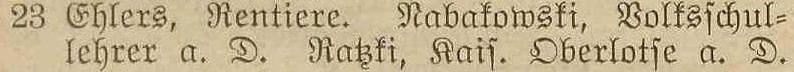 23 Ehlers, Rentiere. Nabakowski, Volksschul=
lehrer a. D. Ratzki, Kais. Oberlotse a. D.